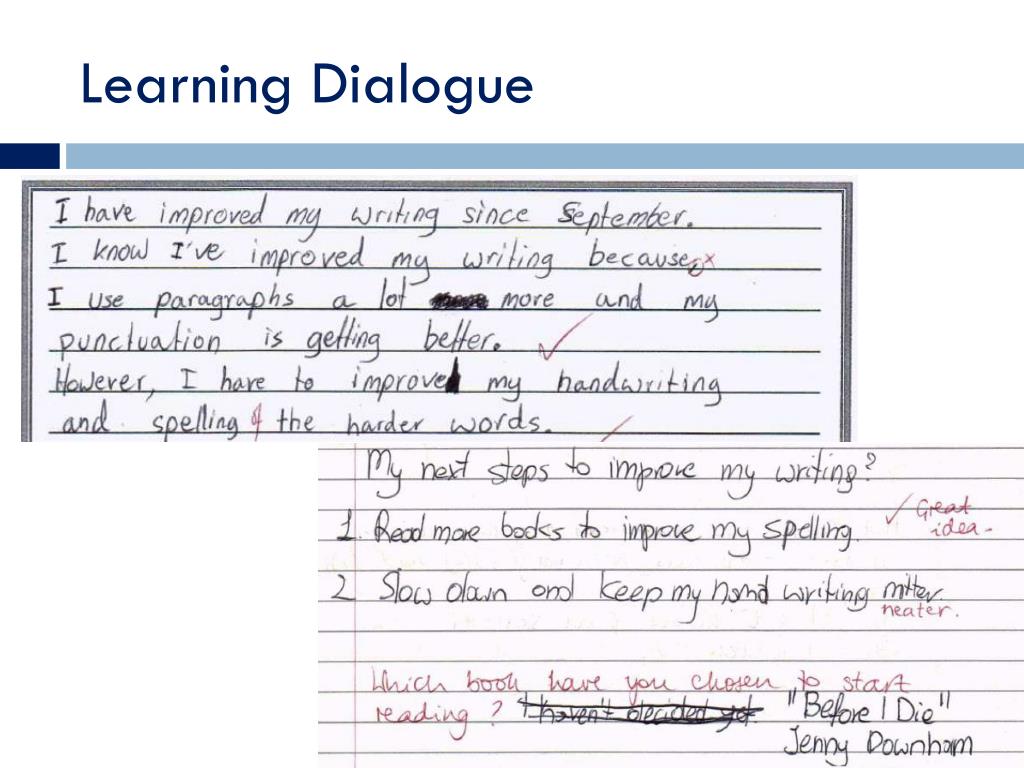 Learning Dialogue
I have improved my writing since September.
I know I've improved my writing because, x
I use paragraphs a lot more and my
punctuation is getting better. ✓
However, I have to improve my handwriting
and spelling of the harder words.
My next steps to improve my writing?
1. Read more books to improve my spelling. ✓ Great
idea.
2 Slow down and keep my hand writing nitter.
neater.
Which book have you chosen to start
reading? I haven't decided yet. "Before I Die"
Jenny Downham